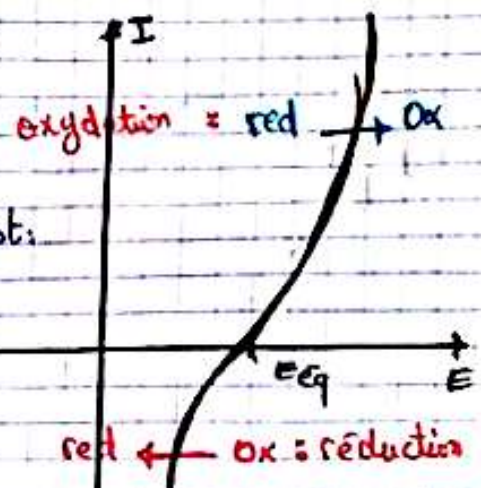 I
oxydation : red → Ox
st:
Eeq
E
red ← Ox : réduction